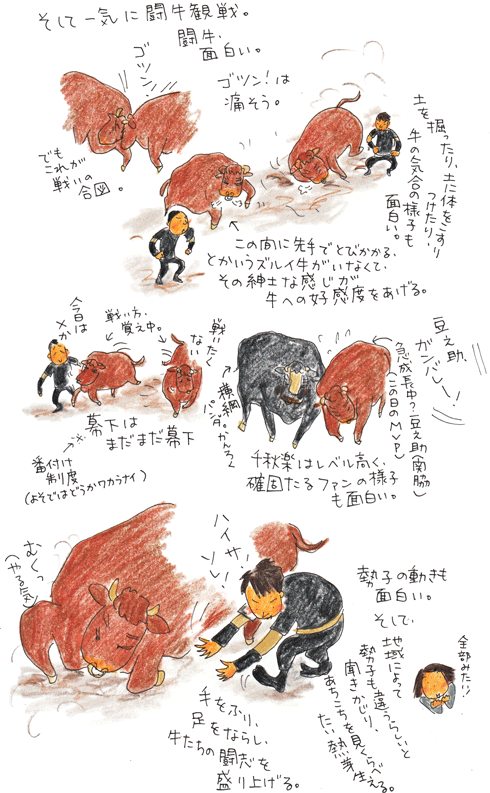 そして一気に闘牛観戦。
闘牛、
面白い。
ゴツン
ゴツン!は
痛そう。
でも
これが
戦いの
合図。
土を掘ったり、土に体をこすり
つけたり!
牛の気合の様子も
面白い。
この間に先手でとびかかる、
とかいうズルイ牛がいなくて、
その紳士な感じが
牛への好感度をあげる。
今日は
メか
戦い方、
覚え中。
戦いたく
ない
幕下は
まだまだ幕下
番付け
制度
(よそではどうかワカラナイ)
横綱
パンダ。かんろく
豆之助、
ガンバレー!
急成長中?豆之助(南脇)
(この日のMVP)
千秋楽はレベル高く、
確固たるファンの様子
も面白い。
むくっ
(やる気)
ハイサ!
ソレ!
手をふり、
足をならし、
牛たちの闘志を
盛り上げる。
勢子の動きも
面白い。
そして、
地域によって
勢子も違うらしいと
聞きかじり、
あちこちを見くらべ
たい熱芽生える。
全部みたい!